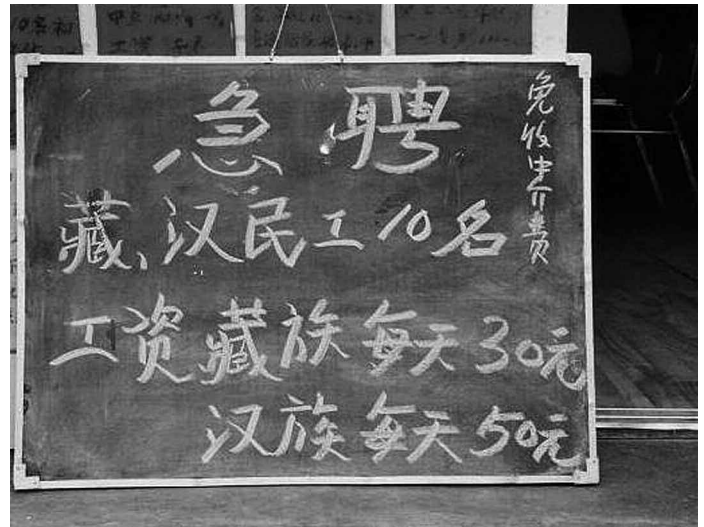 急聘
免收中介费
藏、汉民工10名
工资藏族每天30元
汉族每天50元
10名
工资